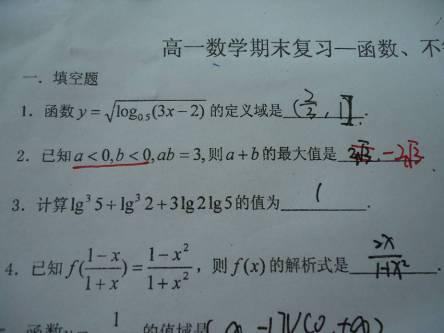 高一数学期末复习—函数、不
一．填空题
1．函数 y = √log₀.₅(3x−2) 的定义域是 (2/3 , 1] .
2．已知 a < 0, b < 0, ab = 3, 则 a + b 的最大值是 2√3 −2√3
3．计算 lg³5 + lg³2 + 3lg2lg5 的值为 1 .
4．已知 f((1−x)/(1+x)) = (1−x²)/(1+x²) ，则 f(x) 的解析式是 2x/(1+x²)
函数 1 的值域是